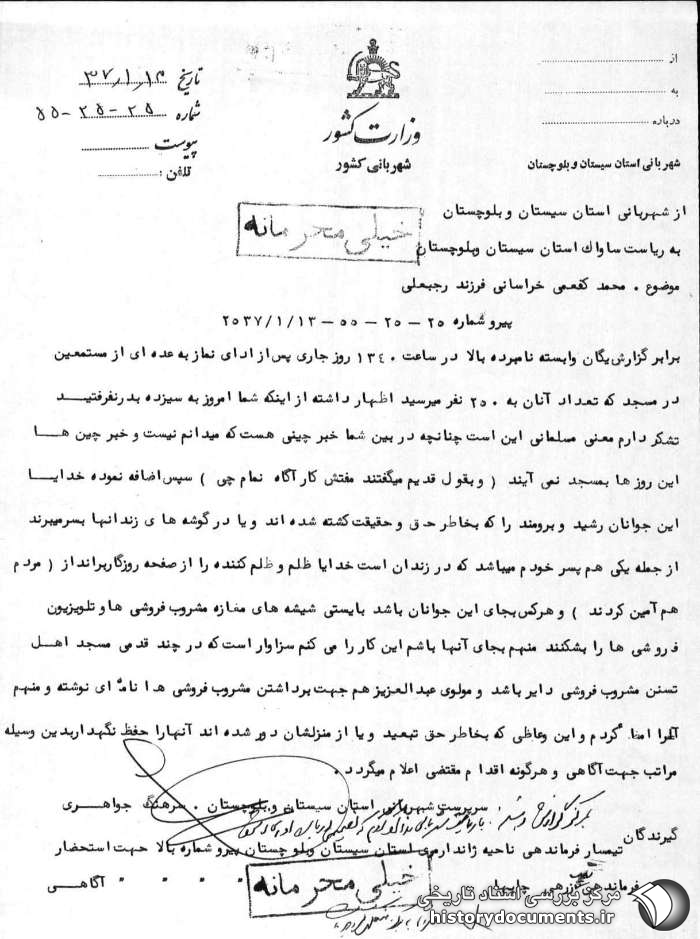 از
به
درباره
شهربانی استان سیستان و بلوچستان
وزارت کشور
شهربانی کشور
تاریخ ۳۷/۱/۱۴
شماره ۲۵-۲۵-۵۵
پیوست
تلفن:
از شهربانی استان سیستان و بلوچستان
به ریاست ساواک استان سیستان وبلوچستان
خیلی محرمانه
موضوع . محمد کفعمی خراسانی فرزند رجبعلی
پیرو شماره ۲۵-۲۰-۵۵-۲۵۳۷/۱/۱۳
برابر گزارش یگان وابسته نامبرده بالا در ساعت ۱۳۴۰ روز جاری پس از ادای نماز به عده ای از مستمعین
در مسجد که تعداد آنان به ۲۵۰ نفر میرسید اظهار داشته از اینکه شما امروز به سیزده بدر نرفتیـد
تشکر دارم معنی مسلمانی این است چنانچه در بین شما خبر چینی هست که میدانم نیست و خبر چین هـا
این روز ها بمسجد نمی آیند ( و بقول قدیم میگفتند مفتش کار آگاه نمام چی ) سپس اضافه نموده خدایـا
این جوانان رشید و برومند را که بخاطر حق و حقیقت کشته شده اند و یا در گوشه های زندانها بسر میبرند
از جمله یکی هم پسر خودم میباشد که در زندان است خدایا ظلم و ظلم کننده را از صفحه روزگار برانداز ( مردم
هم آمین کردند ) و هرکس بجای این جوانان باشد بایستی شیشه های مغازه مشروب فروشی ها و تلویزیون
فروشی ها را بشکنند منهم بجای آنها باشم این کار را می کنم سزاوار است که در چند قدمی مسجد اهـل
تسنن مشروب فروشی دایر باشد و مولوی عبدالعزیز هم جهت برداشتن مشروب فروشی ها نامه ای نوشته و منهم
آنرا امضا کردم و این وعاظی که بخاطر حق تبعید و یا از منزلشان دور شده اند آنهارا حفظ نگهدار بدین وسیله
مراتب جهت آگاهی و هرگونه اقدام مقتضی اعلام میگردد.
سرپرست شهربانی استان سیستان و بلوچستان . سرهنگ جواهـری
گیرندگان
تیمسار فرماندهی ناحیه ژاندارمری استان سیستان وبلوچستان پیرو شماره بالا جهت استحضار
فرماندهی " " " " آگاهـی
خیلی محرمانه
مرکز بررسی اسناد تاریخی
historydocuments.ir